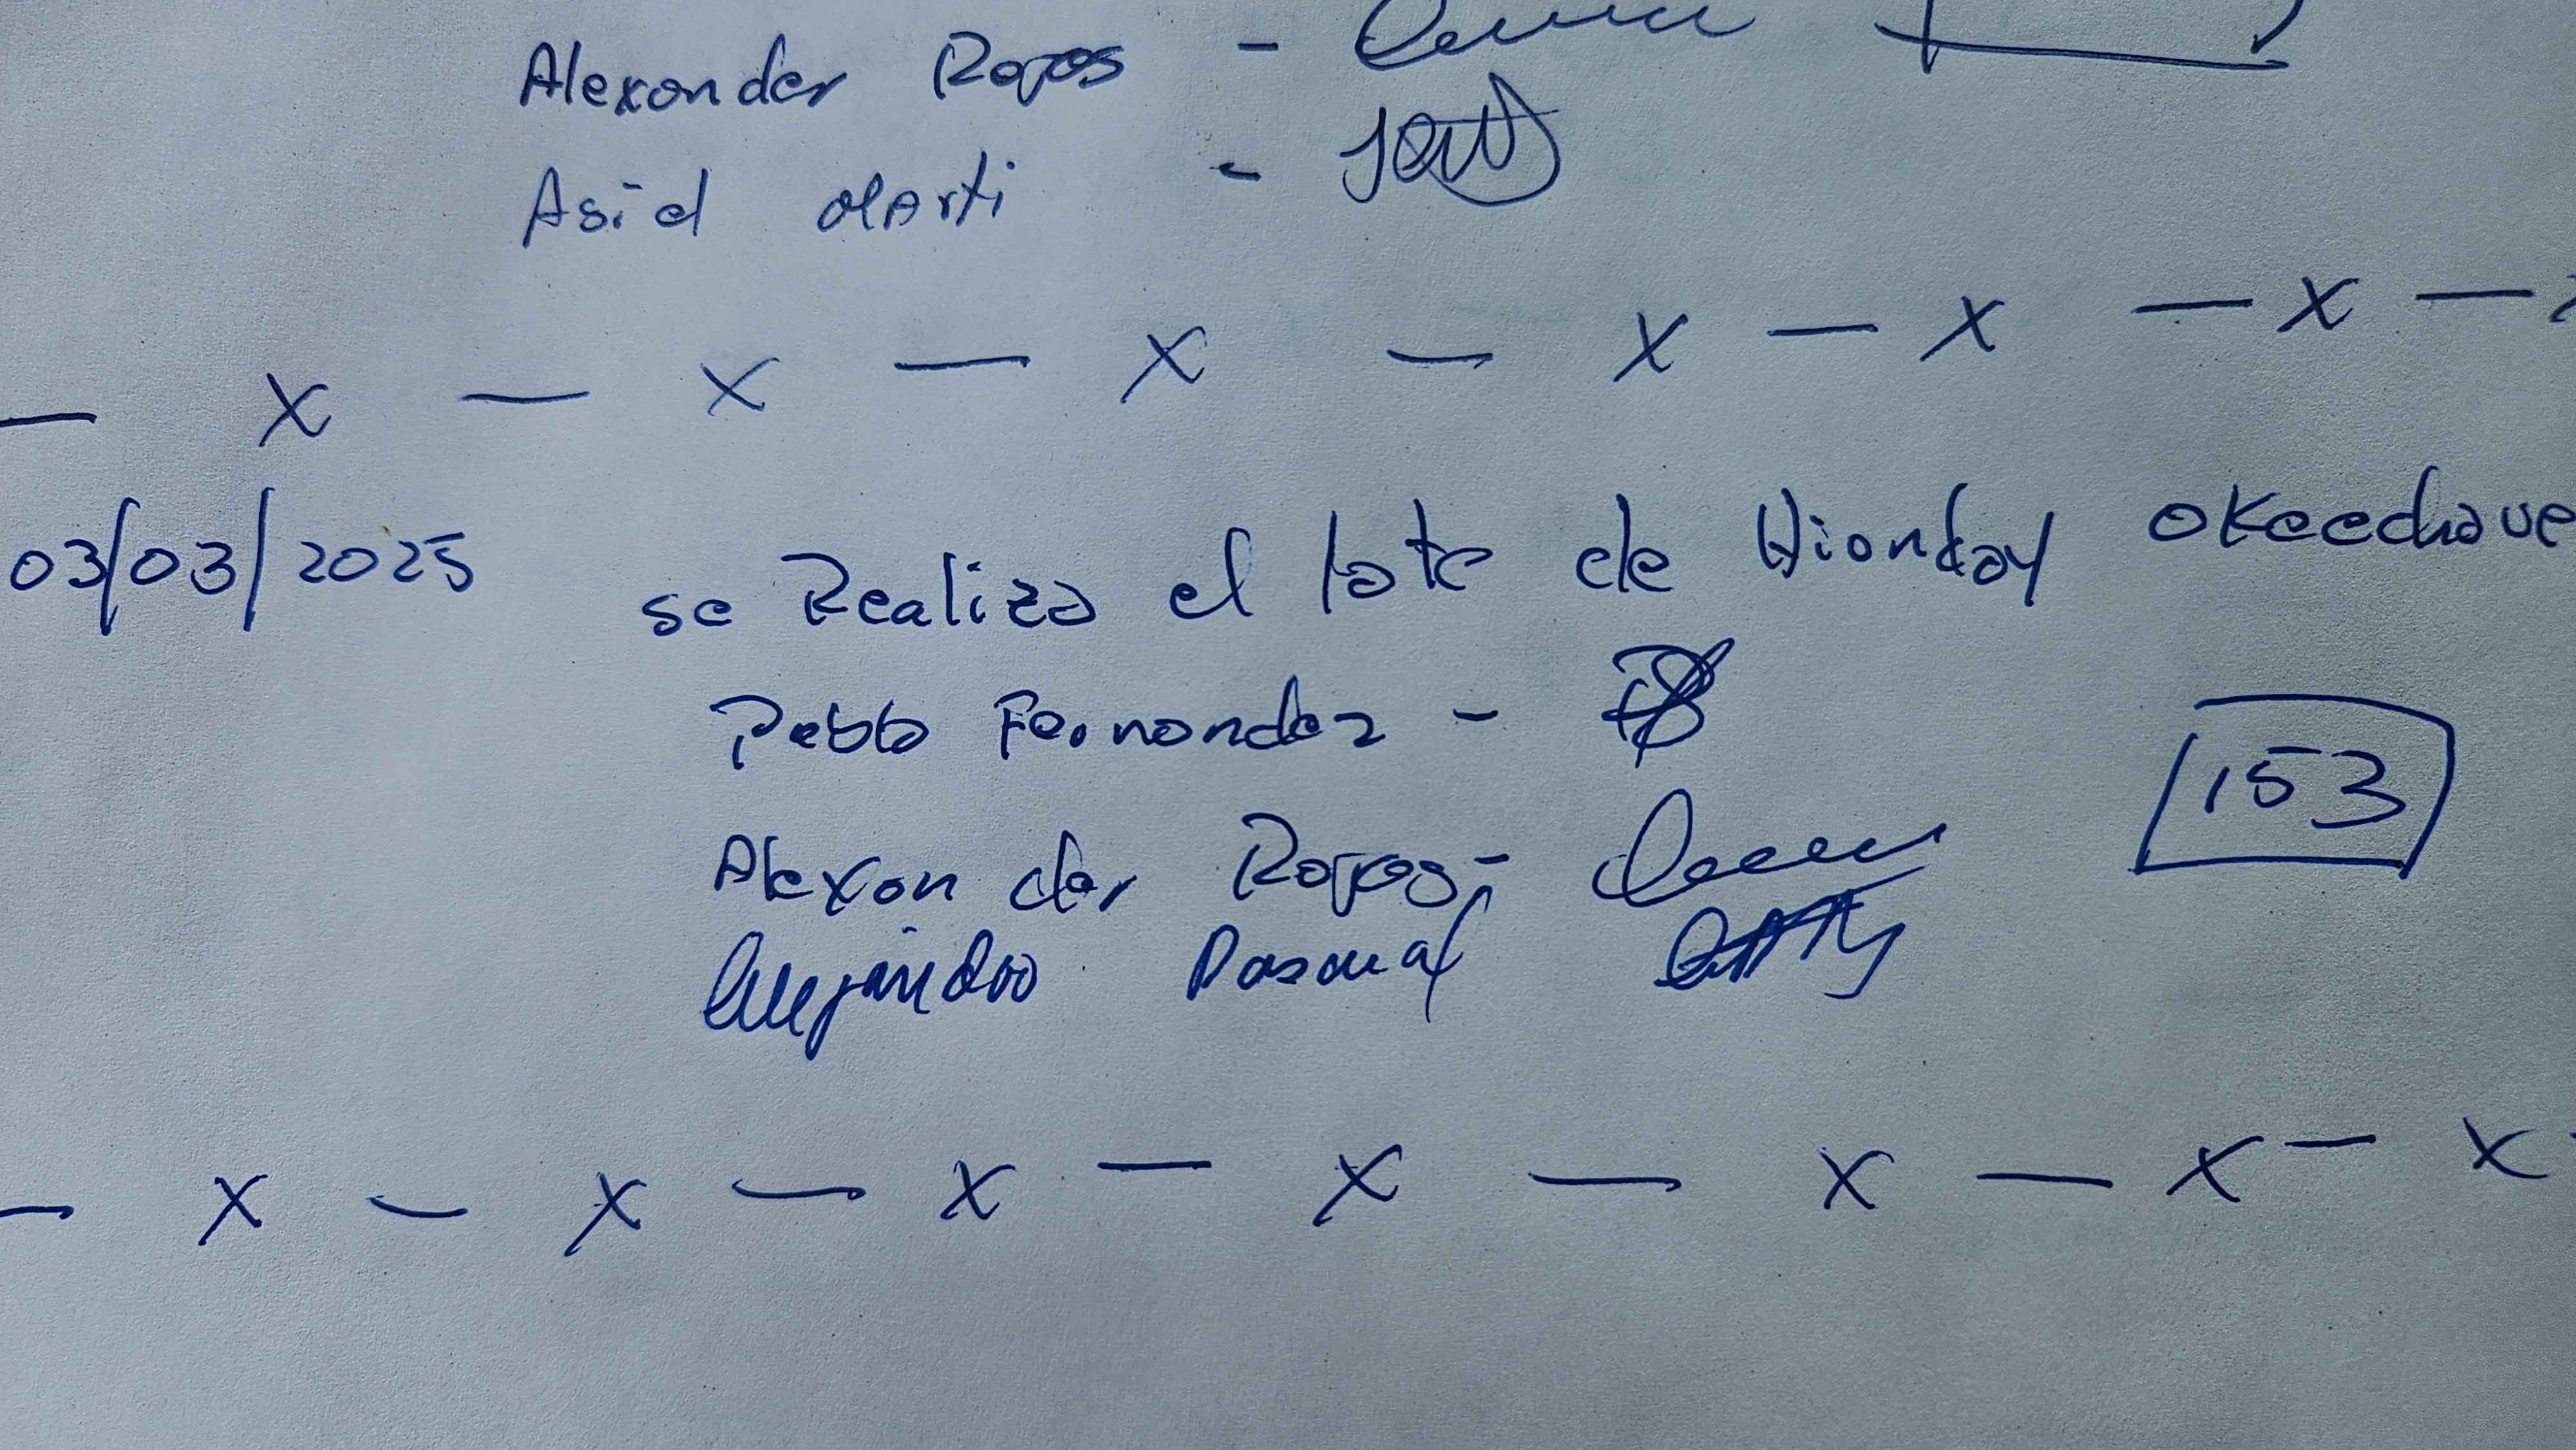 Alexander Rojas -
Asiel Marti -
— X — X — X — X — X — X —
03/03/2025 se Realizo el lote de Hionday okeechove
Pablo Fernandez -
153
Alexander Rojas -
Alejandro Pascual
— X — X — X — X — X — X — X